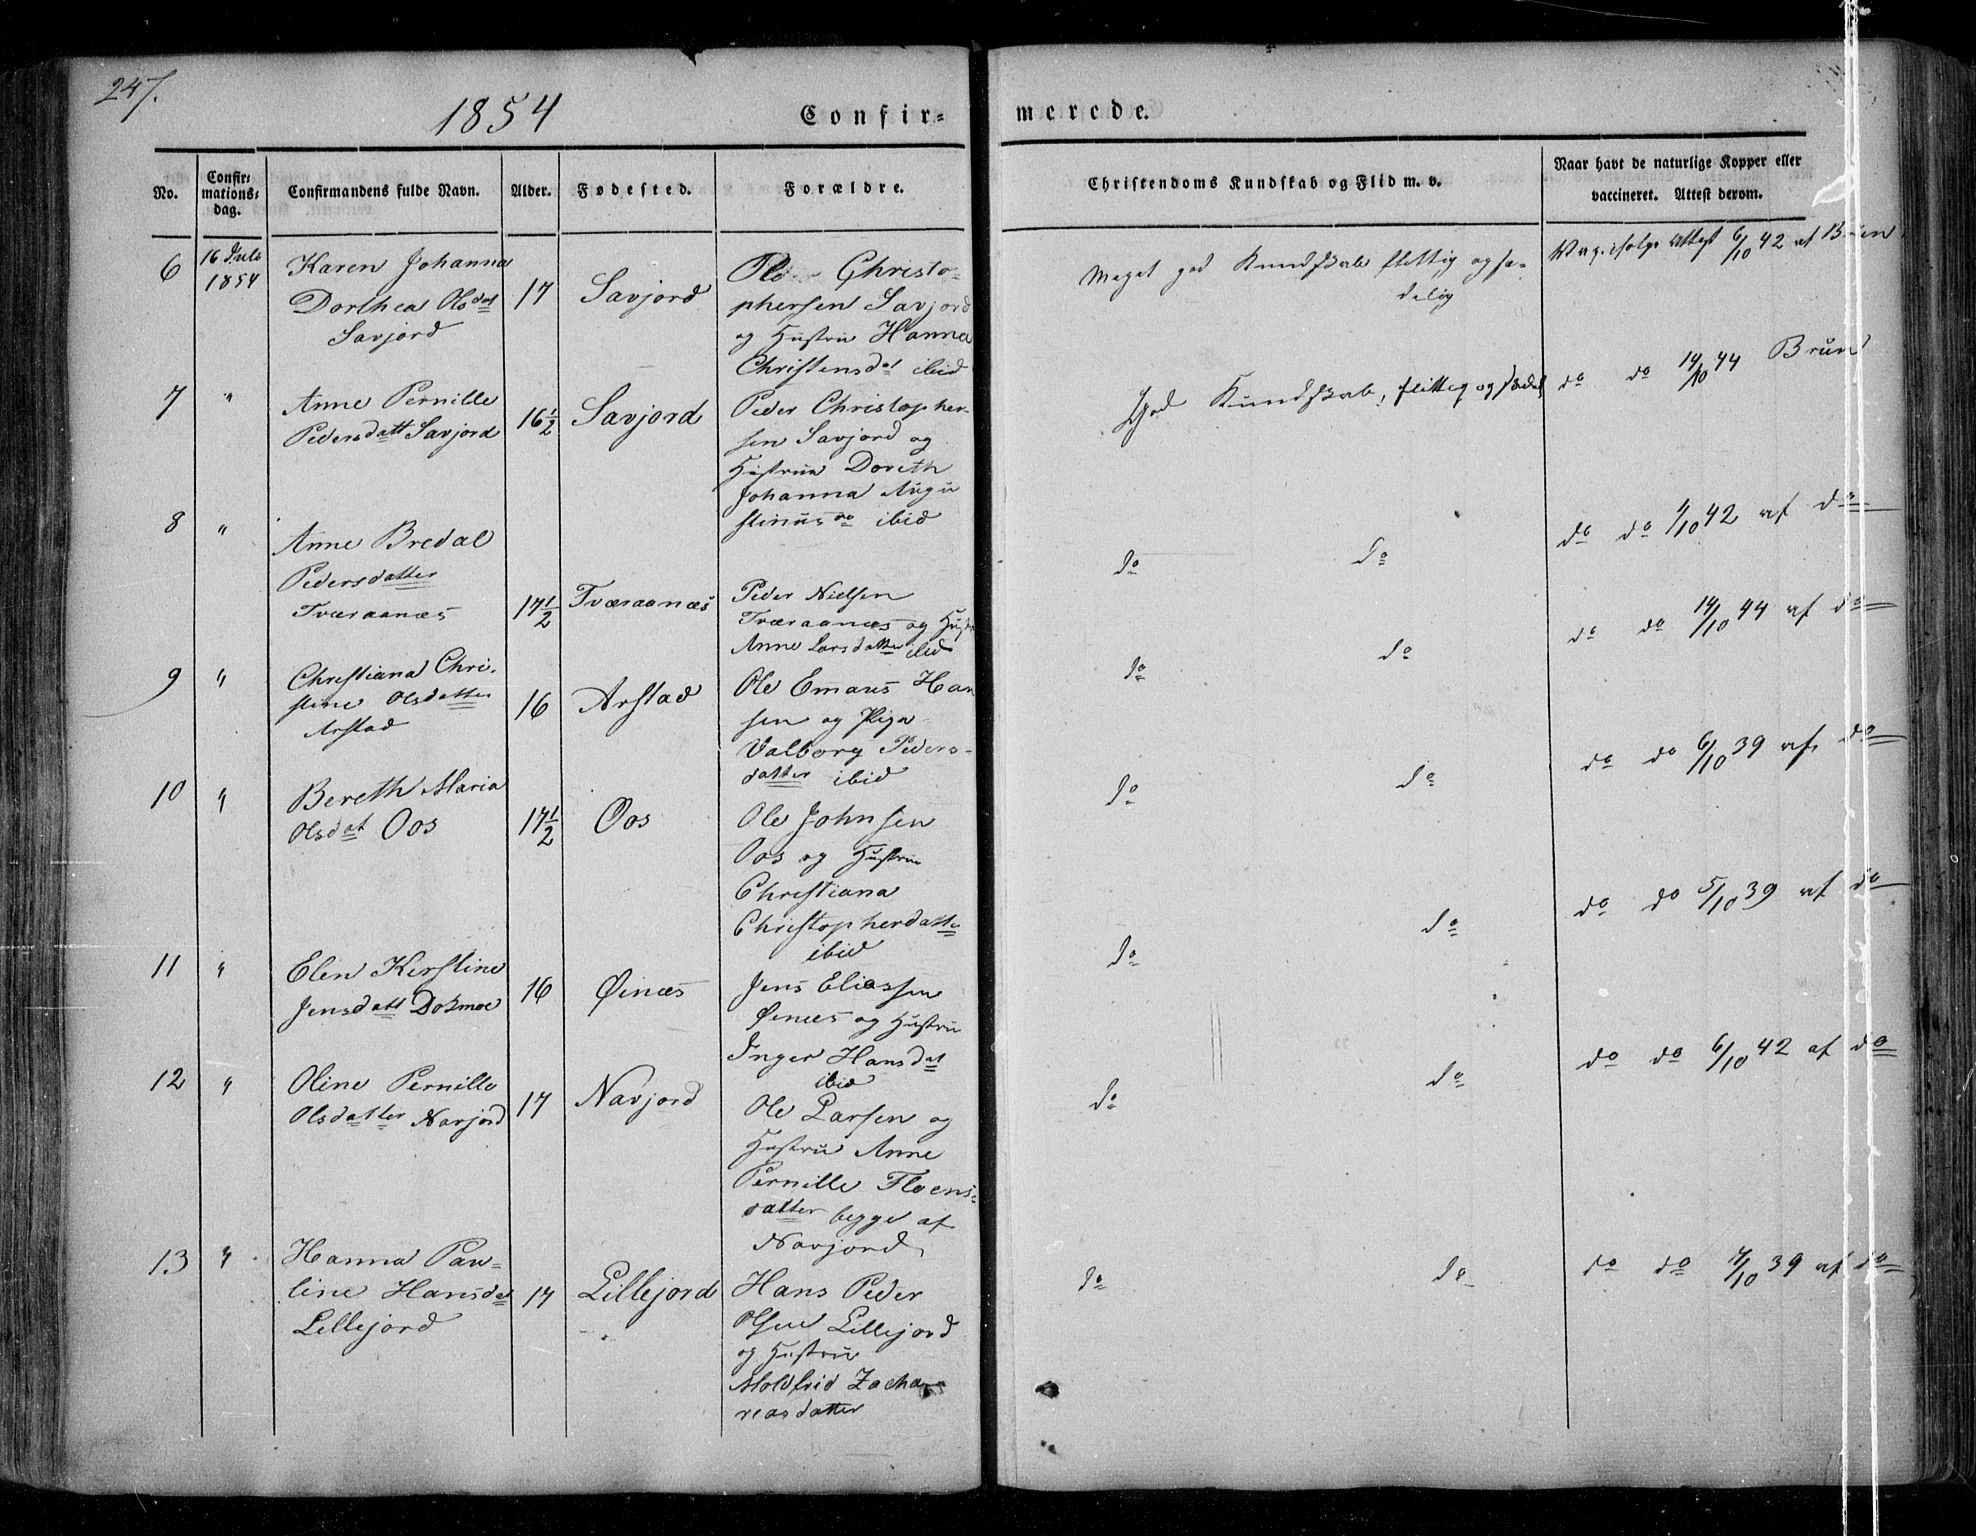 247.
1854
Confir-
merede.
No.
Confir-
mations-
dag.
Confirmandens fulde Navn.
Alder.
Fødested.
Forældre.
Christendoms Kundskab og Flid m. v.
Naar havt de naturlige Kopper eller
vaccineret. Attest derom.
6
16 Juli
1854
Karen Johanna
Dorthea Olsdat
Savjord
17
Savjord
Ole Christo-
phersen Savjord
og Hustru Hanna
Christensdat ibid
Meget god Kundskab flittig og sæ-
delig
Attest 6/10 42 af Brun
7
"
Anne Pernille
Pedersdatt Savjord
16 1/2
Savjord
Peder Christopher-
sen Savjord og
Hustrue Doreth
Johanna Augu
stinusda ibid
God Kundskab, flittig og sædel
do do 14/10 44 Brun
8
"
Anne Bredal
Pedersdatter
Tværaanæs
17 1/2
Tværaanæs
Peder Nielsen
Tværaanæs og Hust
Anne Larsdatter ibid
do do
do do /10 42 af do
9
"
Christiana Chri-
stine Olsdatter
Arstad
16
Arstad
Ole Emaus Han
sen og Piga
Valborg Peders-
datter ibid
do do
do do 14/10 44 af do
10
"
Bereth Maria
Olsdat Oos
17 1/2
Oos
Ole Johnsen
Oos og Hustrue
Christiana
Christopherdatte
ibid
do do
do do 6/10 39 af do
11
"
Elen Kerstine
Jensdatt Dokmoe
16
Øinæs
Jens Eliassen
Øinæs og Hustru
Inger Hansdat
ibid
do do
do do 5/10 39 af do
12
"
Oline Pernille
Olsdatter Navjord
17
Navjord
Ole Larsen og
Hustru Anne
Pernille Floens-
datter begge af
Navjord
do do
do do 6/10 42 af do
13
"
Hanna Pau-
line Hansdat
Lillejord
17
Lillejord
Hans Peder
Olsen Lillejord
og Hustru
Moldfrid Zacha
reasdatter
do do
do do 7/10 39 af do